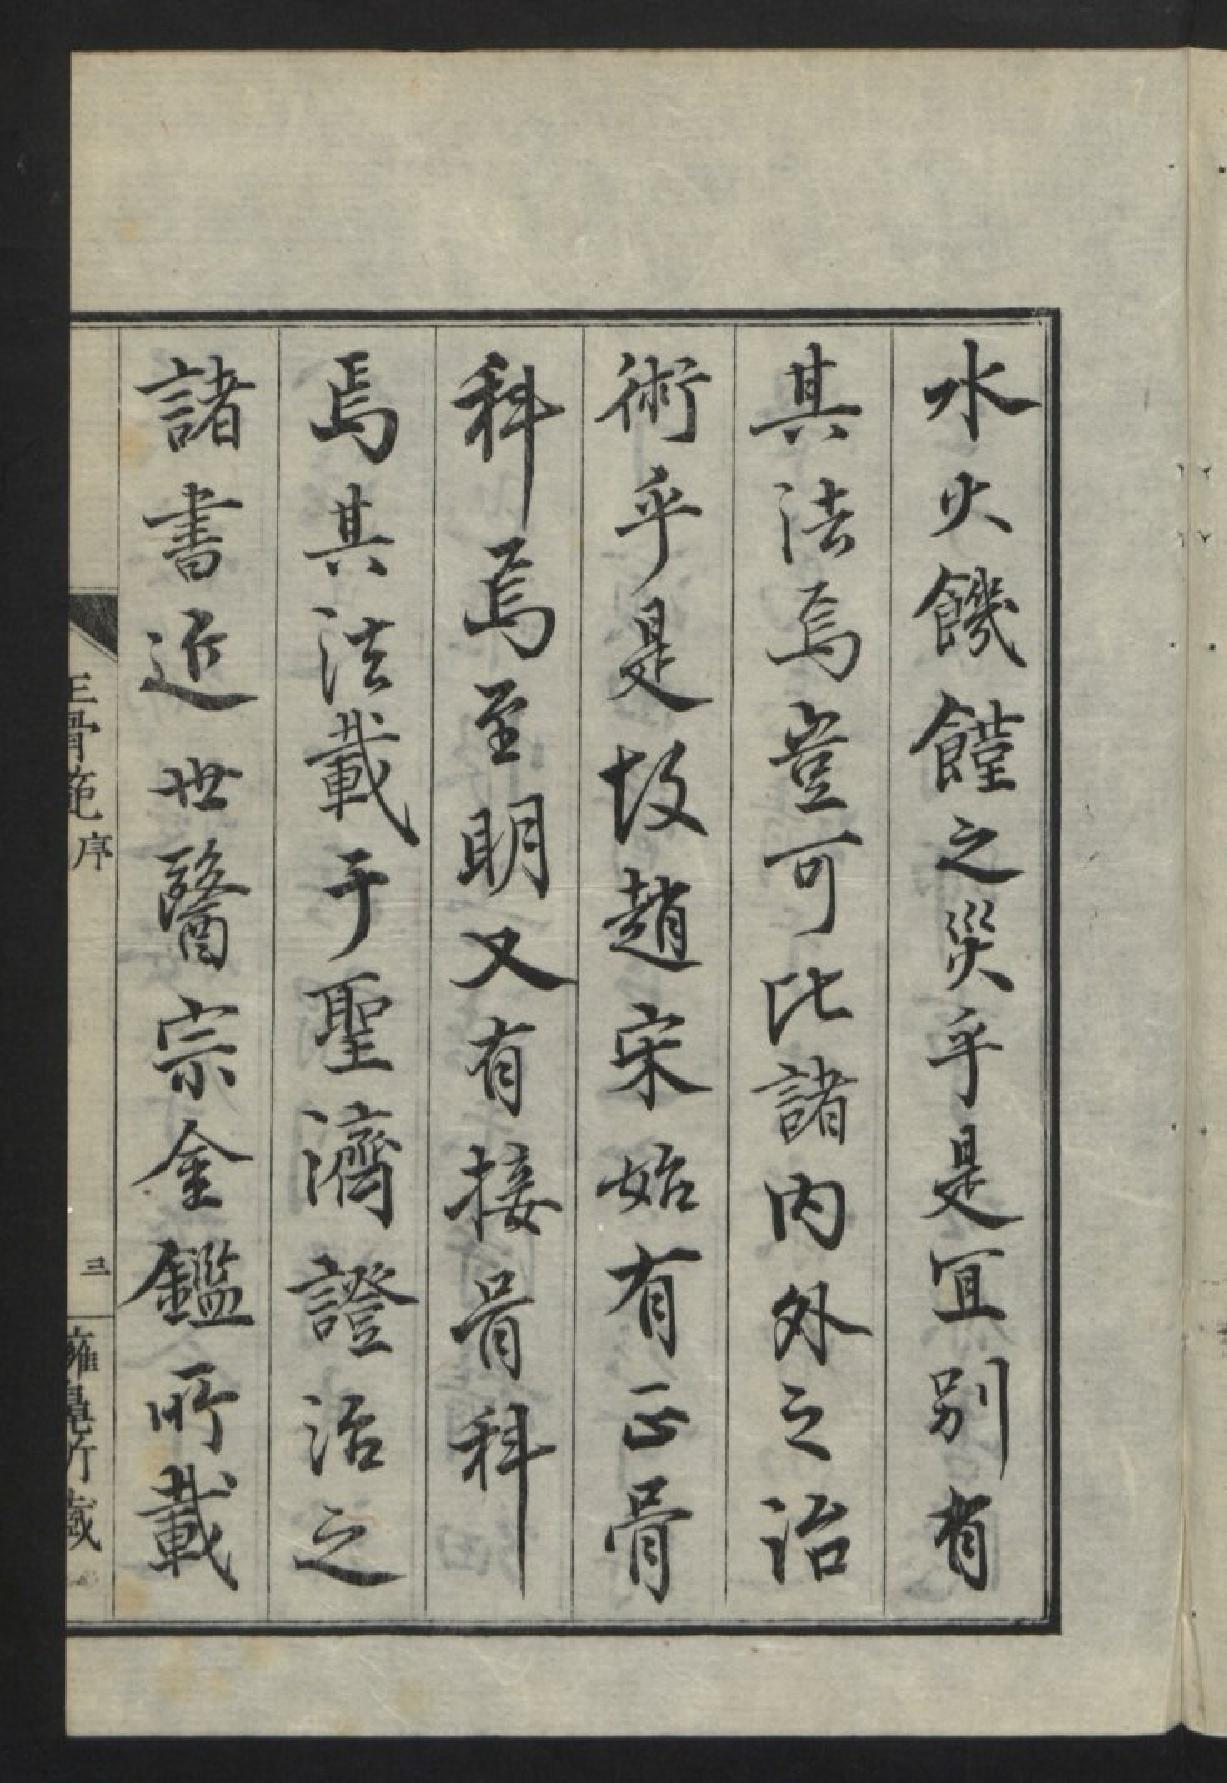 水火饑饉之災乎是宜別有
其法焉豈可比諸内外之治
術乎是故趙宋始有正骨
科焉至明又有接骨科
焉其法載于聖濟證治之
諸書近世醫宗金鑑所載
正骨範 序
三